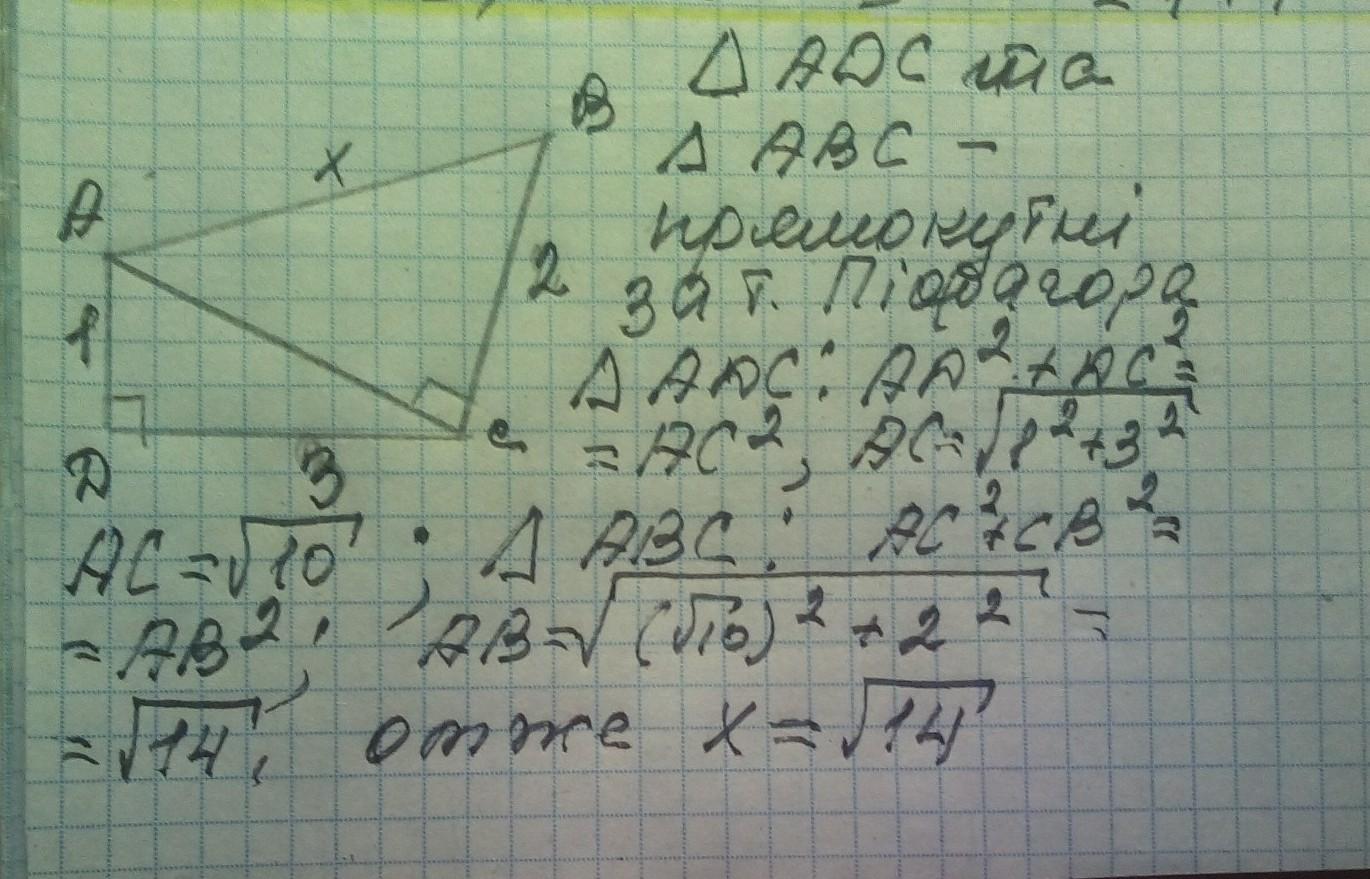 B
△ ADC та
△ ABC –
прямокутні
за т. Піфагора
△ ADC: AD² + DC² =
= AC², AC = √1² + 3²
A
x
2
1
D
3
C
AC = √10 ; △ ABC: AC² + CB² =
= AB²; AB = √(√10)² + 2² =
= √14, отже x = √14